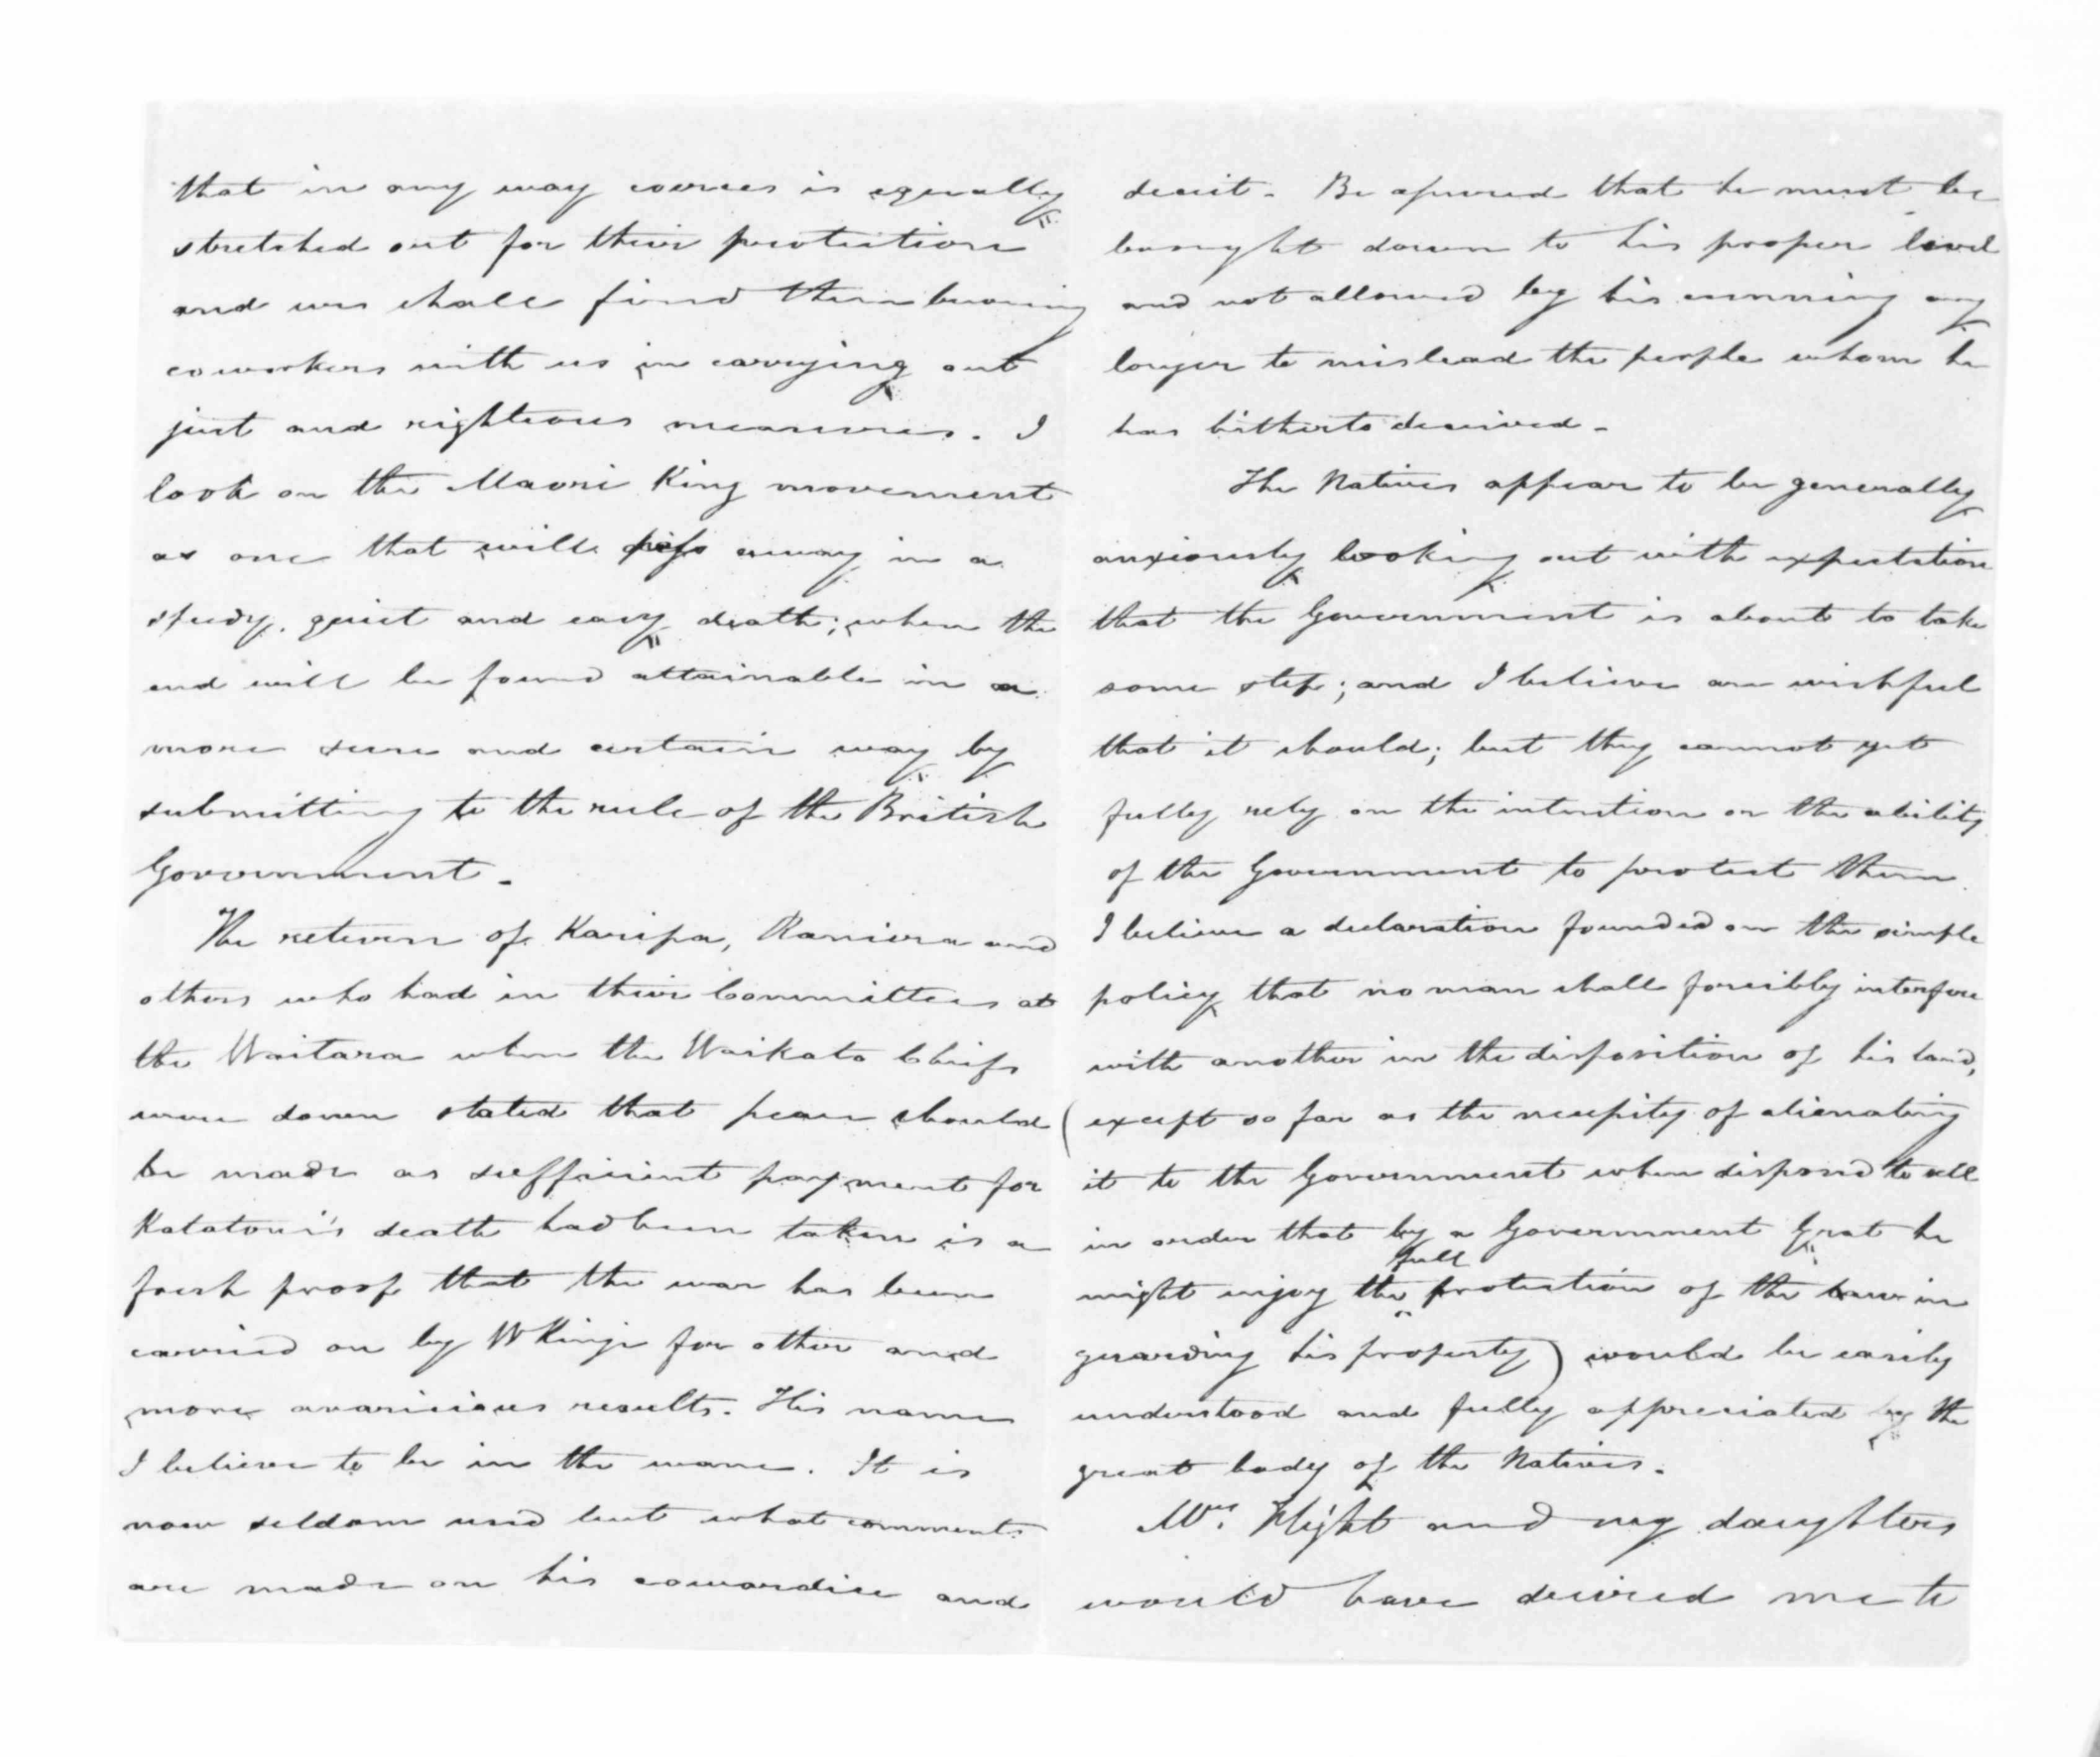 that in any way coerces is equally
stretched out for their protection
and we shall find them becoming
coworkers with us in carrying out
just and righteous measures. I
look on the Maori King movement
as one that will pass away in a
speedy, quiet and easy death; when the
end will be found attainable in a
more sure and certain way by
submitting to the rule of the British
Government.
The return of Karipa, Raniera and
others who had in their Committees at
the Waitara when the Waikato Chiefs
were down stated that peace should
be made as sufficient payment for
Katatori's death had been taken is a
fresh proof that the war has been
carried on by W Kingi for other and
more avaricious results. His name
I believe to be in the wane. It is
now seldom used but what comments
are made on his cowardice and
deceit. Be assured that he must be
brought down to his proper level
and not allowed by his cunning any
longer to mislead the people whom he
has hitherto deceived.
The Natives appear to be generally
anxiously looking out with expectation
that the Government is about to take
some step; and I believe are wishful
that it should; but they cannot yet
fully rely on the intention or the ability
of the Government to protect them.
I believe a declaration founded on the simple
policy that no man shall forcibly interfere
with another in the disposition of his land,
(except so far as the necessity of alienating
it to the Government when disposed to sell
in order that by a Government Grat he
might enjoy the full protection of the law in
guarding his property) would be easily
understood and fully appreciated by the
great body of the Natives.
Mrs. Flight and my daughters
would have desired me to